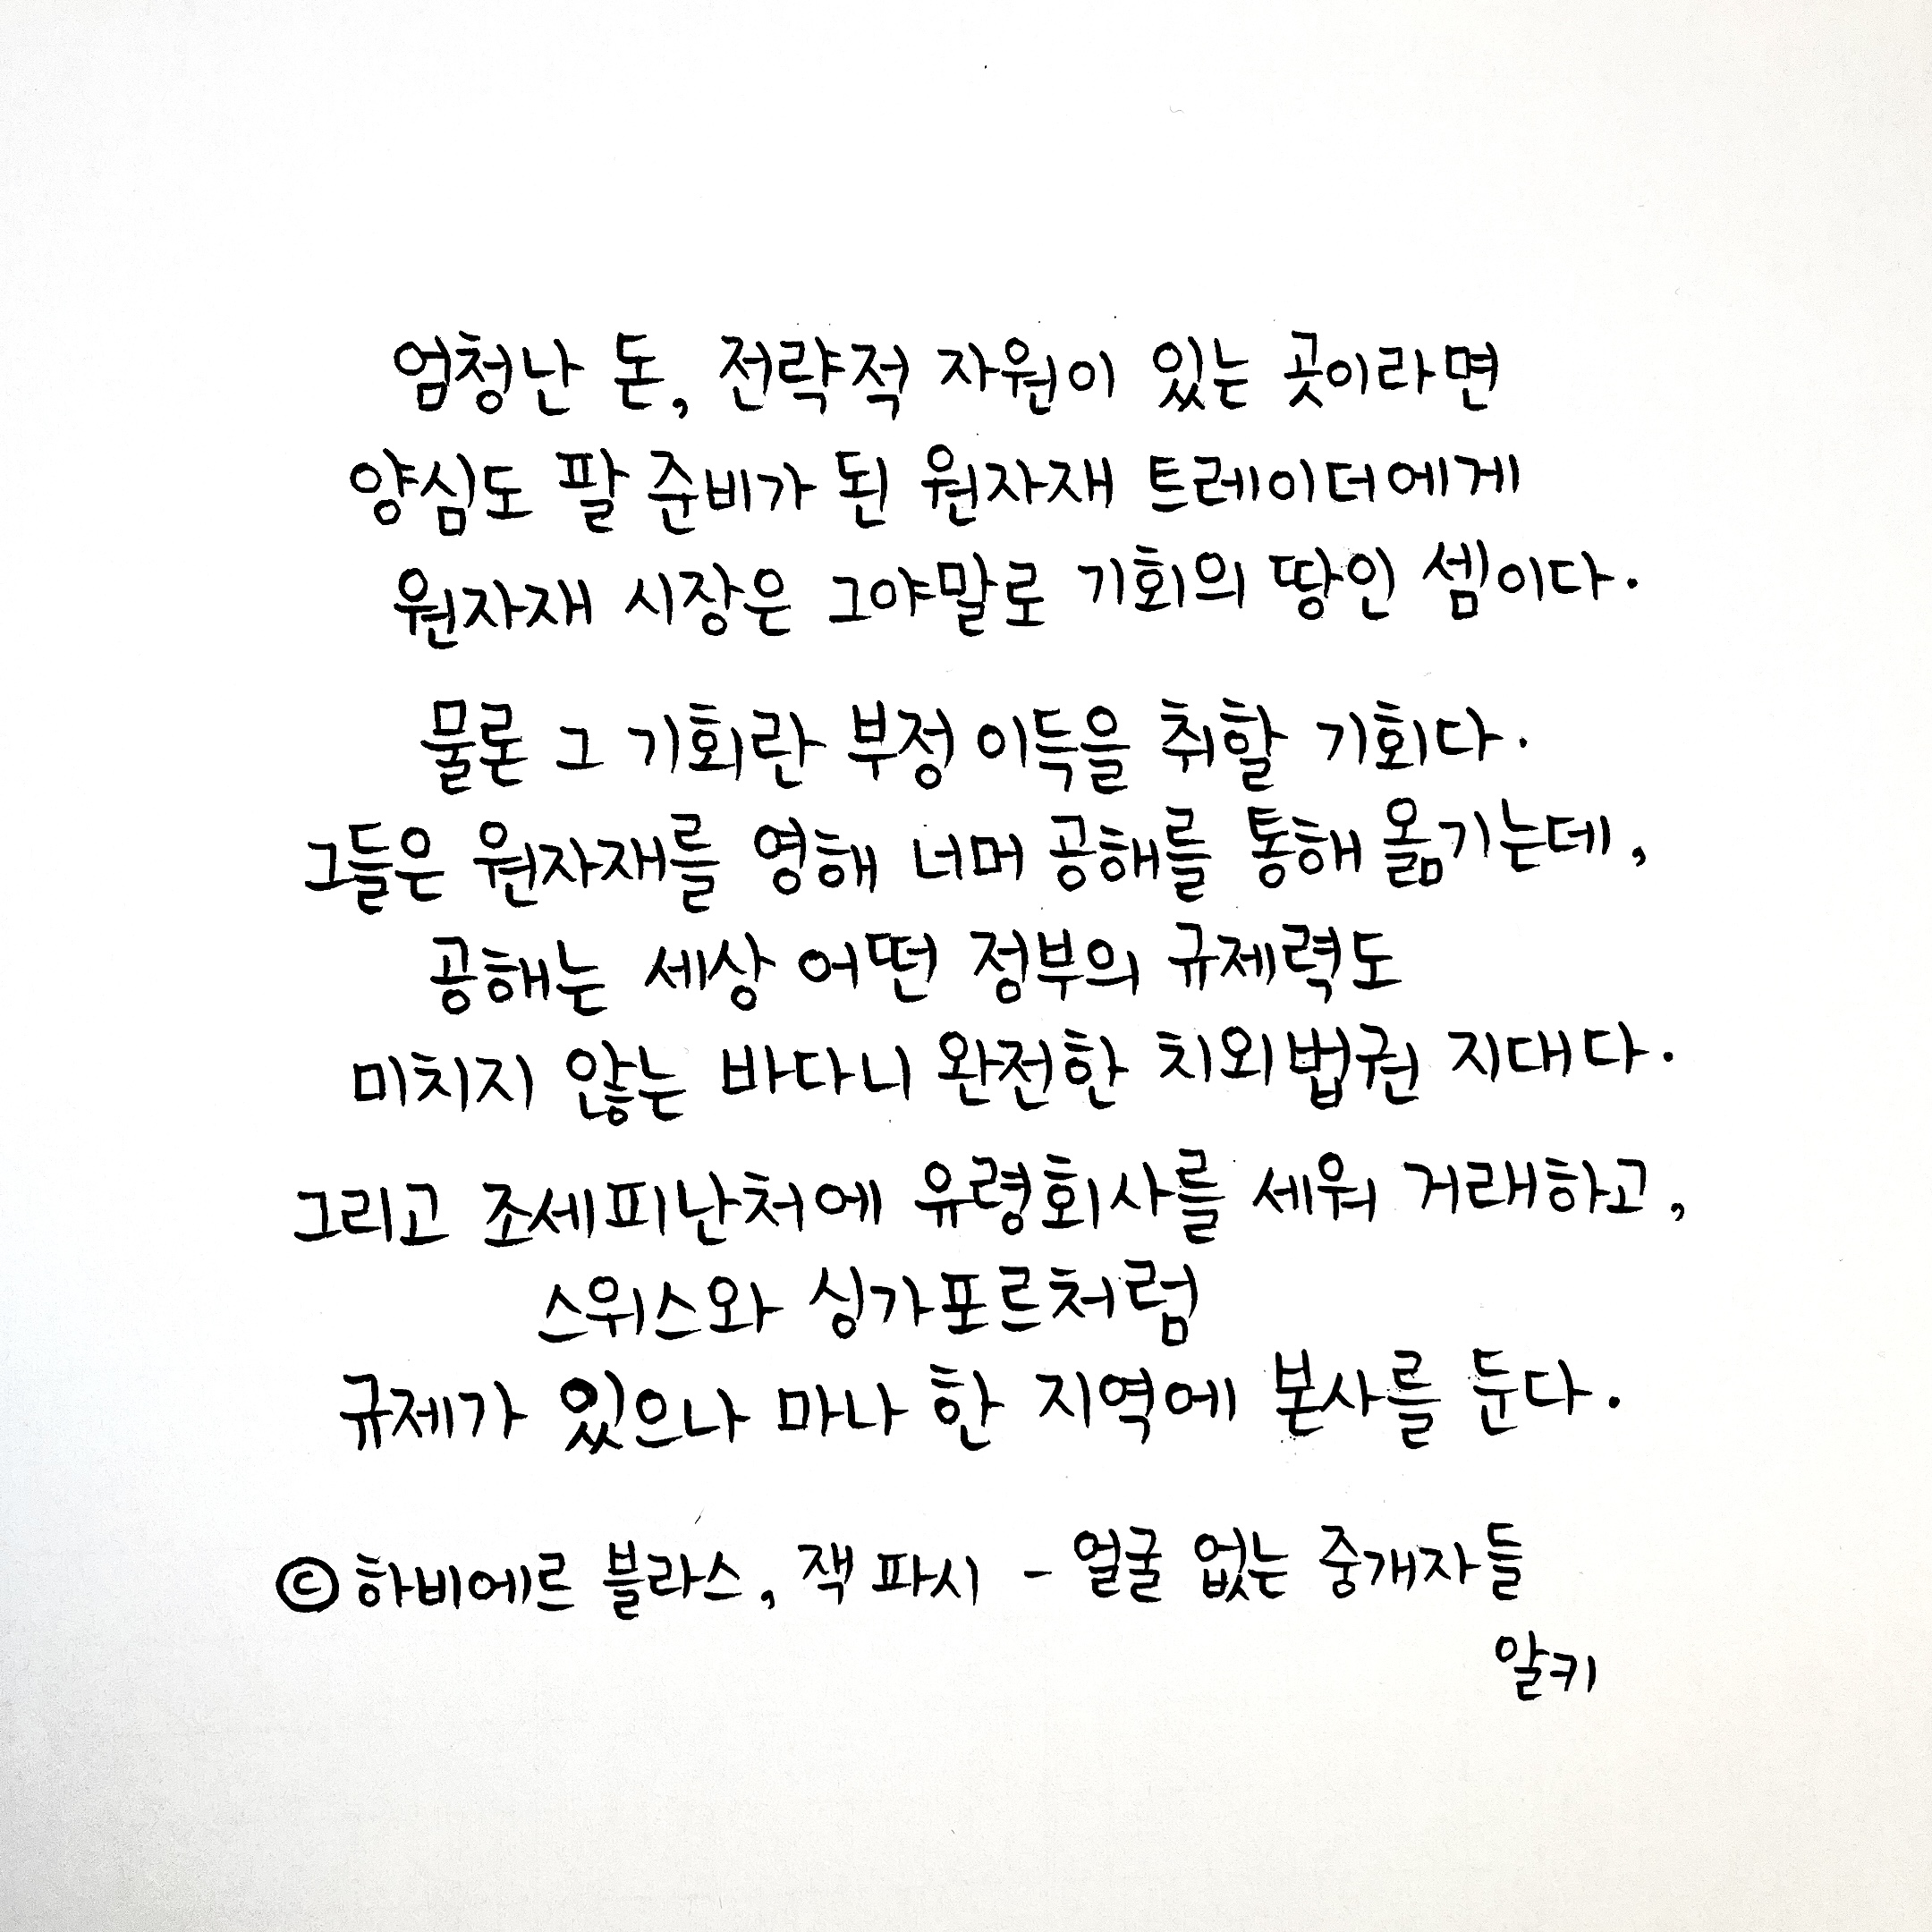 엄청난 돈, 전략적 자원이 있는 곳이라면
양심도 팔 준비가 된 원자재 트레이더에게
원자재 시장은 그야말로 기회의 땅인 셈이다.
물론 그 기회란 부정 이득을 취할 기회다.
그들은 원자재를 영해 너머 공해를 통해 옮기는데,
공해는 세상 어떤 정부의 규제력도
미치지 않는 바다니 완전한 치외법권 지대다.
그리고 조세피난처에 유령회사를 세워 거래하고,
스위스와 싱가포르처럼
규제가 있으나 마나 한 지역에 본사를 둔다.
©하비에르 블라스, 잭 파시 - 얼굴 없는 중개자들
알키